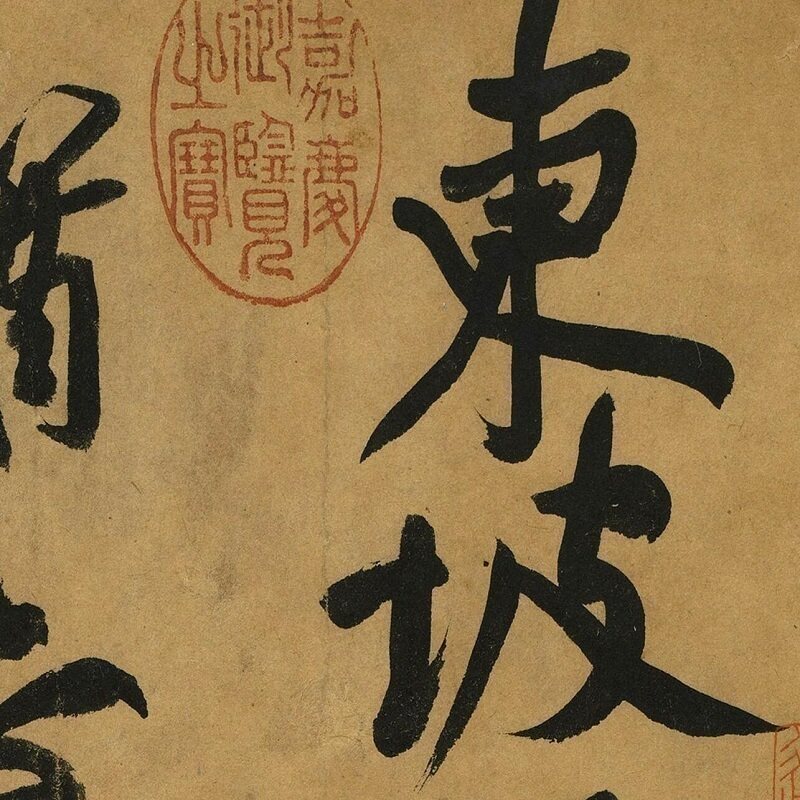 東坡
嘉慶
御覽
之寶